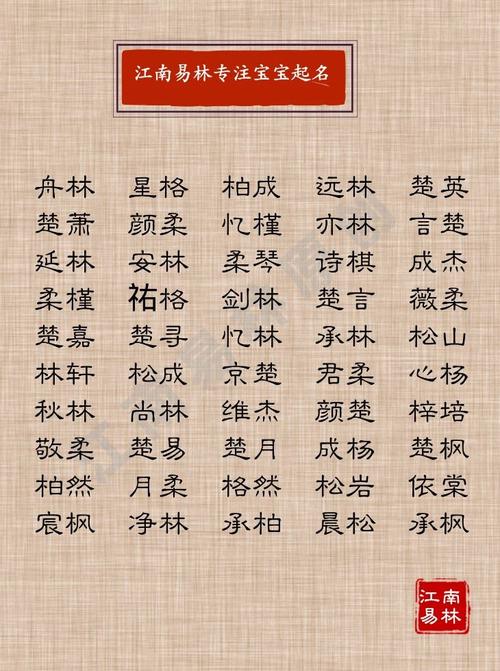 江南易林专注宝宝起名
舟林 星格 柏成 远林 楚英
楚萧 颜柔 忆槿 亦林 言楚
延林 安林 柔琴 诗棋 成杰
柔槿 祐格 剑林 楚言 薇柔
楚嘉 楚寻 忆林 承林 松山
林轩 松成 京楚 君柔 心杨
秋林 尚林 维杰 颜楚 梓培
敬柔 楚易 楚月 成杨 楚枫
柏然 月柔 格然 松岩 依棠
宸枫 净林 承柏 晨松 承枫
江南
易林